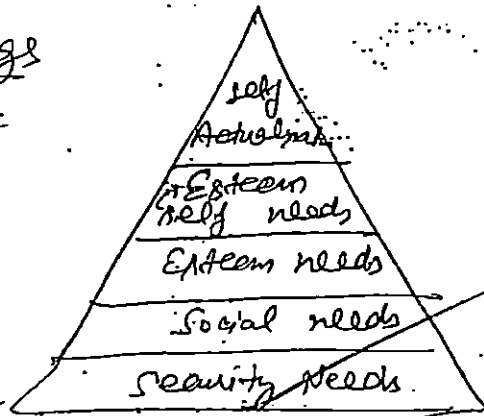 gs
self
Actualisatn
Esteem
self needs
Esteem needs
Social needs
Security Needs